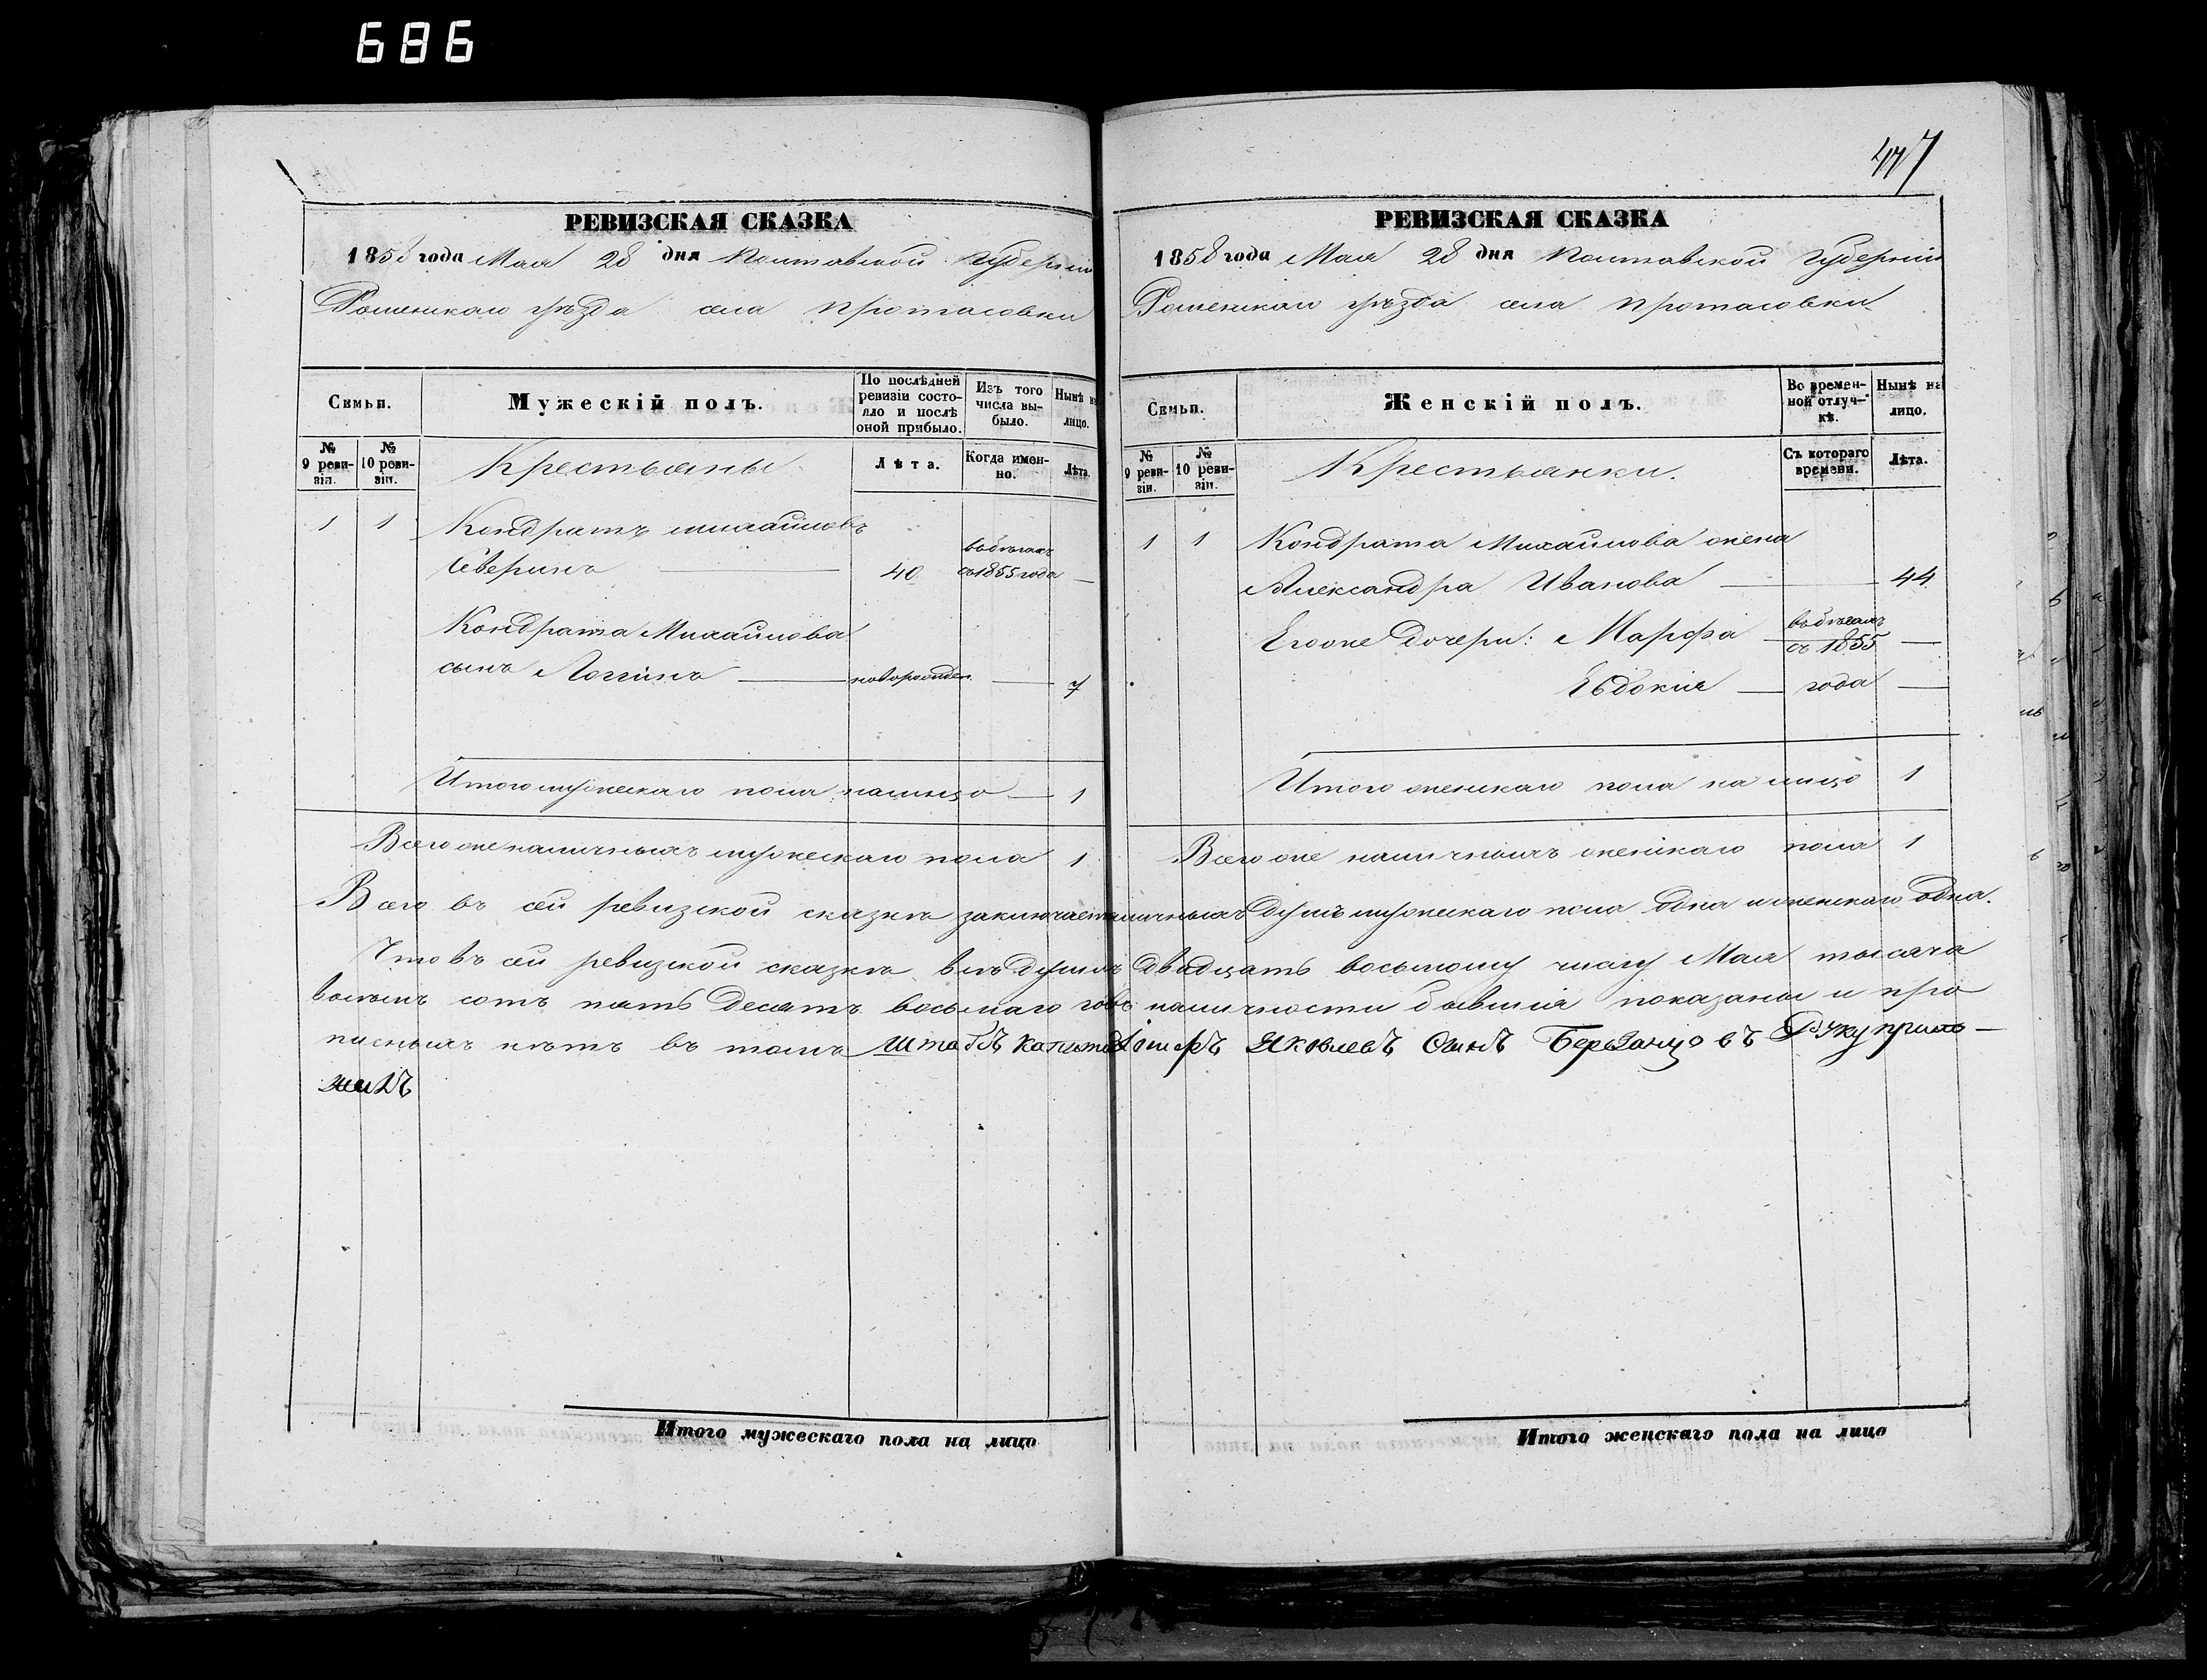 686
447
РЕВИЗСКАЯ СКАЗКА
1858 года Мая 28 дня Полтавской Губерніи
Роменскаго уѣзда села Протасовки
Семьи.
Мужескій полъ.
По послѣдней ревизіи состояло и послѣ оной прибыло.
Изъ того числа выбыло.
Нынѣ на лицо.
№ 9 ревизіи.
№ 10 ревизіи.
Крестьяны
Лѣта.
Когда именно.
Лѣта.
1 1 Кондратъ михайловъ
Северинъ 40 въ бѣгахъ съ 1855 года —
Кондрата Михайлова
сынъ Логгинъ — новорожден — 7
Итого мужескаго пола налицо — 1
Всего же наличныхъ мужескаго пола 1
РЕВИЗСКАЯ СКАЗКА
1858 года Мая 28 дня Полтавской Губерніи
Роменскаго уѣзда села Протасовки
Семьи.
Женскій полъ.
Во временной отлучкѣ.
Нынѣ на лицо.
№ 9 ревизіи.
№ 10 ревизіи.
Крестьянки.
Съ котораго времени.
Лѣта.
1 1 Кондрата Михайлова жена
Александра Иванова — 44
Его же дочери: Марфа — въ бѣгахъ съ 1855 —
Евдокія — года —
Итого женскаго пола на лицо 1
Всего же наличныхъ женскаго пола 1
Всего въ сей ревизской сказкѣ заключается наличныхъ душъ мужескаго пола одна и женскаго одна.
Что въ сей ревизской сказкѣ всѣ души по двадцать восьмому числу Мая тысяча
восемь сотъ пять десятъ восьмаго года въ наличности бывшія показаны и про
писныхъ нѣтъ въ томъ штабсъ капитанъ Яковлевъ Сынъ Руку прило-
жилъ
Итого мужескаго пола на лицо
Итого женскаго пола на лицо